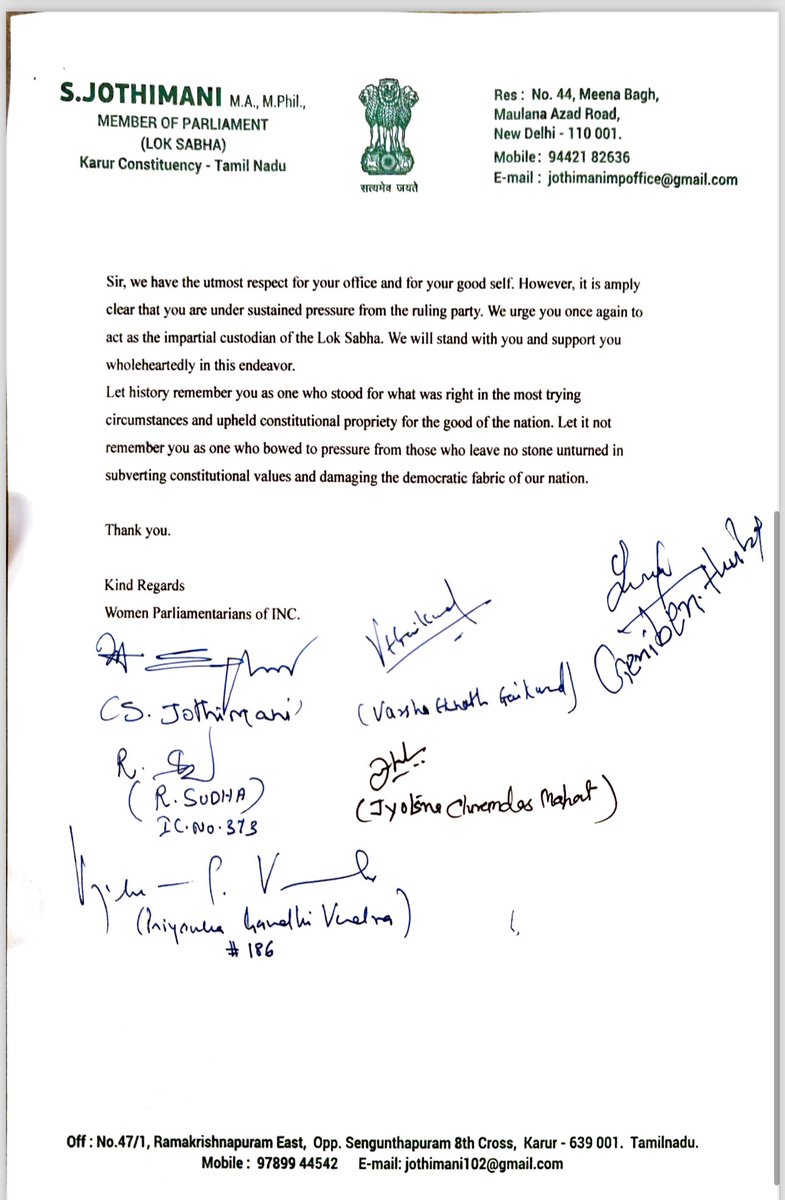 S.JOTHIMANI M.A., M.Phil.,
MEMBER OF PARLIAMENT
(LOK SABHA)
Karur Constituency - Tamil Nadu
सत्यमेव जयते
Res : No. 44, Meena Bagh,
Maulana Azad Road,
New Delhi - 110 001.
Mobile : 94421 82636
E-mail : jothimanimpoffice@gmail.com
Sir, we have the utmost respect for your office and for your good self. However, it is amply
clear that you are under sustained pressure from the ruling party. We urge you once again to
act as the impartial custodian of the Lok Sabha. We will stand with you and support you
wholeheartedly in this endeavor.
Let history remember you as one who stood for what was right in the most trying
circumstances and upheld constitutional propriety for the good of the nation. Let it not
remember you as one who bowed to pressure from those who leave no stone unturned in
subverting constitutional values and damaging the democratic fabric of our nation.
Thank you.
Kind Regards
Women Parliamentarians of INC.
(S. Jothimani)
(Varsha Eknath Gaikwad)
R.
(R. SUDHA)
IC.No. 373
(Jyotsna Charandas Mahant)
(Priyanka Gandhi Vadra)
# 186
Off : No.47/1, Ramakrishnapuram East, Opp. Sengunthapuram 8th Cross, Karur - 639 001. Tamilnadu.
Mobile : 97899 44542 E-mail: jothimani102@gmail.com